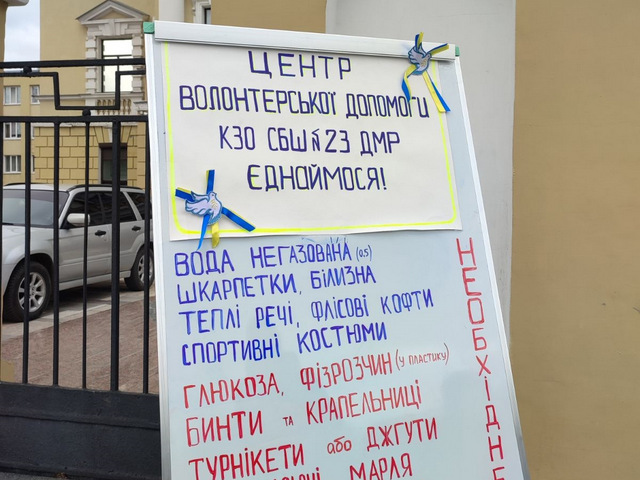 ЦЕНТР
ВОЛОНТЕРСЬКОЇ ДОПОМОГИ
КЗО СБШ №23 ДМР
ЄДНАЙМОСЯ!
ВОДА НЕГАЗОВАНА (0,5)
ШКАРПЕТКИ, БІЛИЗНА
ТЕПЛІ РЕЧІ, ФЛІСОВІ КОФТИ
СПОРТИВНІ КОСТЮМИ
ГЛЮКОЗА, ФІЗРОЗЧИН (у пластику)
БИНТИ та КРАПЕЛЬНИЦІ
ТУРНІКЕТИ або ДЖГУТИ
МАРЛЯ
НЕОБХІДНЕ